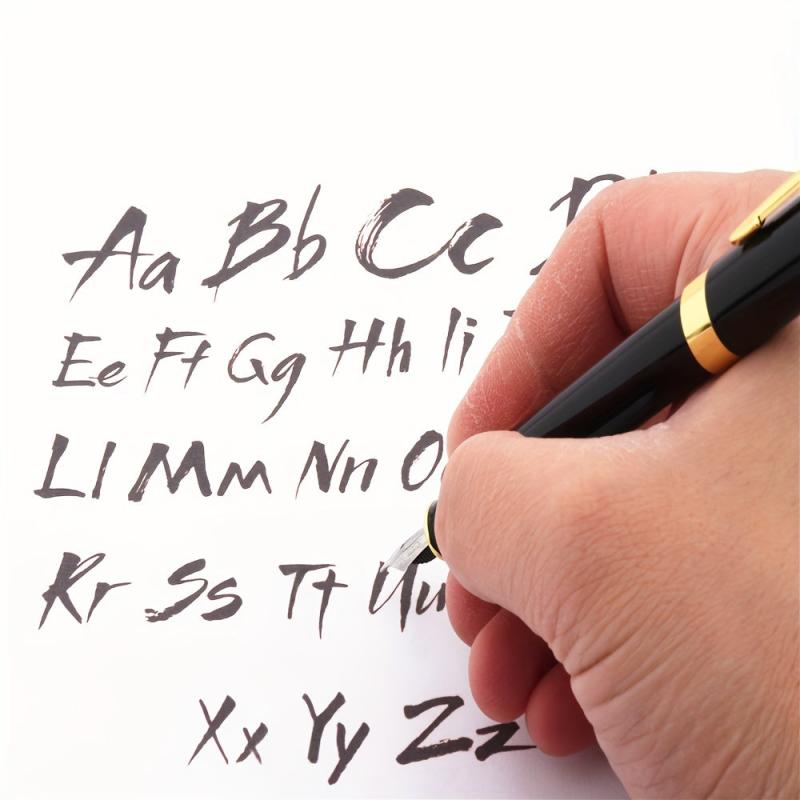 Aa Bb Cc D
Ee Ff Gg Hh Ii
Ll Mm Nn O
Rr Ss Tt Uu
Xx Yy Zz